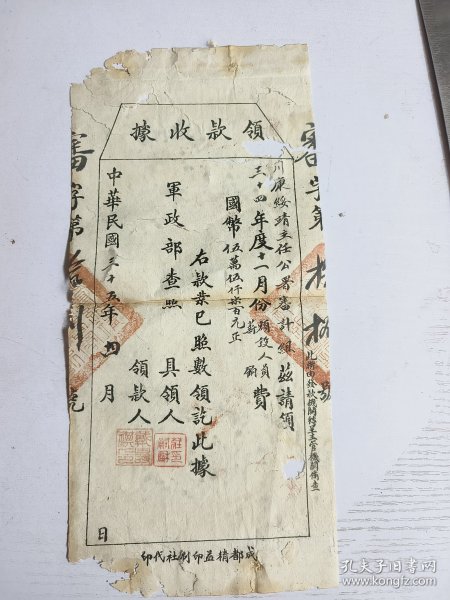 領款收據
川康綏靖主任公署審計組茲請領
三十四年度十一月份額設人員薪餉費
國幣伍萬伍仟柒百元正
右款業已照數領訖此據
軍政部查照
具領人
領款人
中華民國三十五年四月
日
審字第
號
此聯由發款機關轉呈主管機關備查
審字第
號
成都精益印刷社代印
孔夫子旧书网